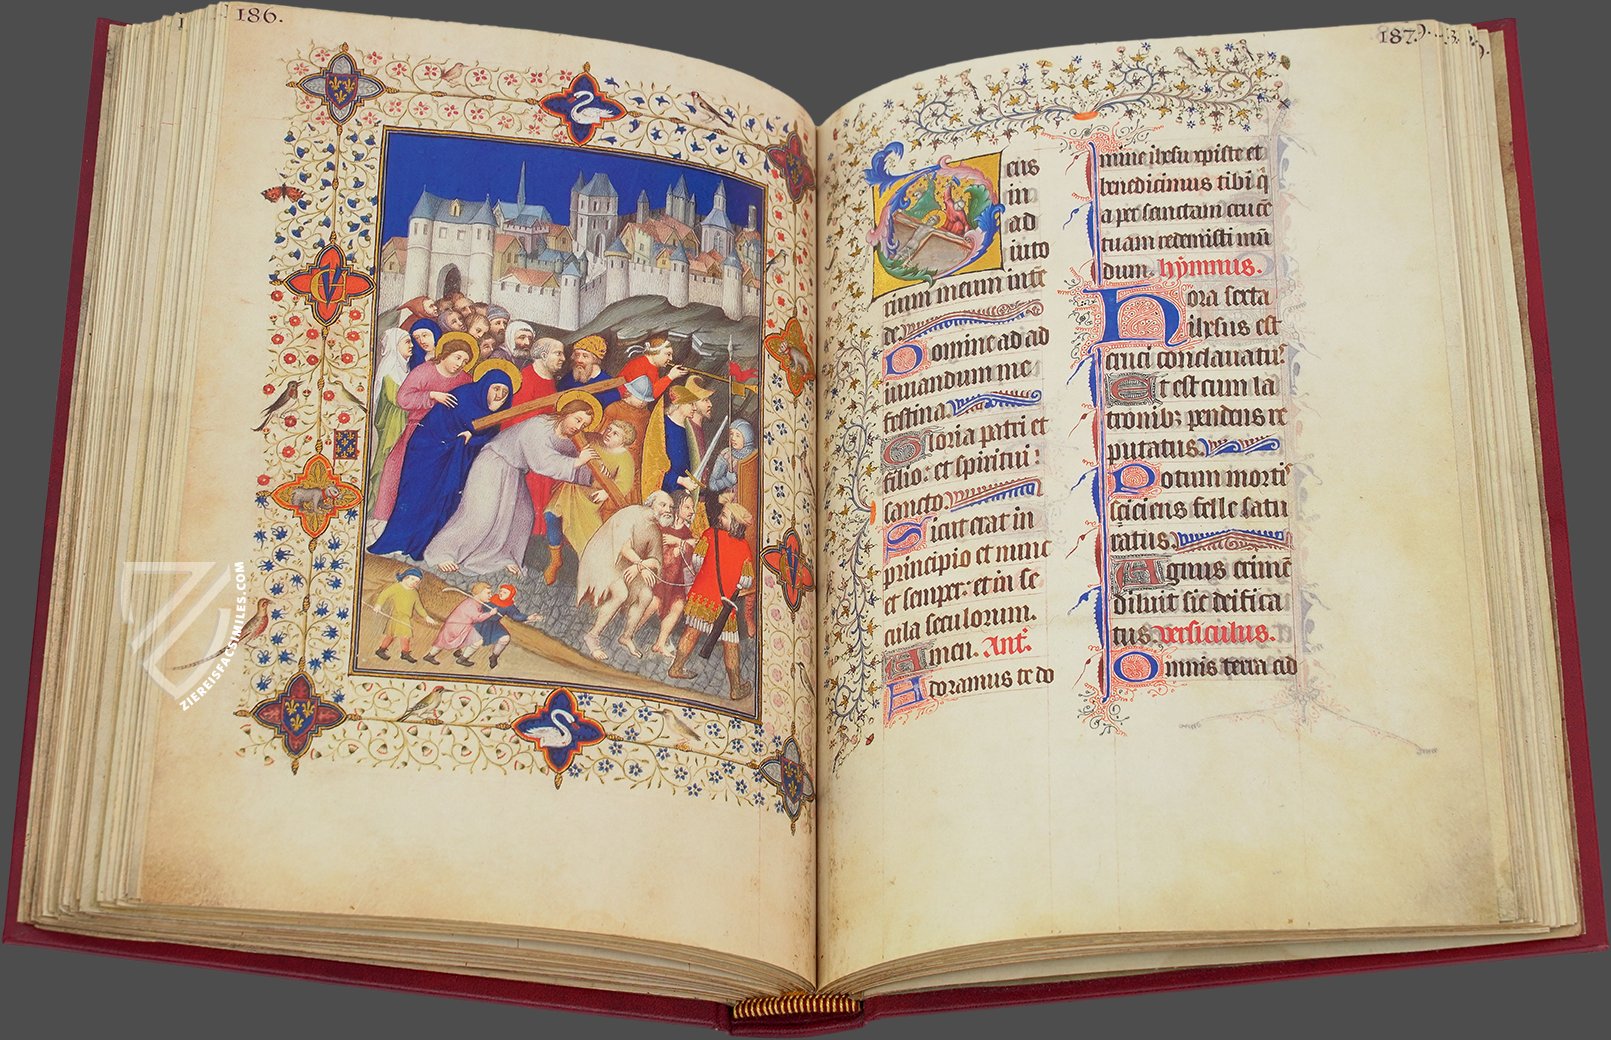 186.
187.
eus
in
ad
iuto
rium meum inte
de
Domine ad ad
iuuandum me
festina
Gloria patri et
filio: et spiritui
sancto
Sicut erat in
principio et nunc
et semper: et in se
cula seculorum.
Amen. Ant.
Adoramus te do
mine ihesu xpiste et
benedicimus tibi q
a per sanctam cruce
tuam redemisti mu
dum. hymnus.
Hora sexta
ihesus est
cruci conclauatus
Et est cum la
tronib; pendens re
putatus
Potum mortis
sciciens felle satu
ratus
Agnus crimen
diluit sic deifica
tus. versiculus.
Omnis terra ad
ZIEREISFACSIMILES.COM